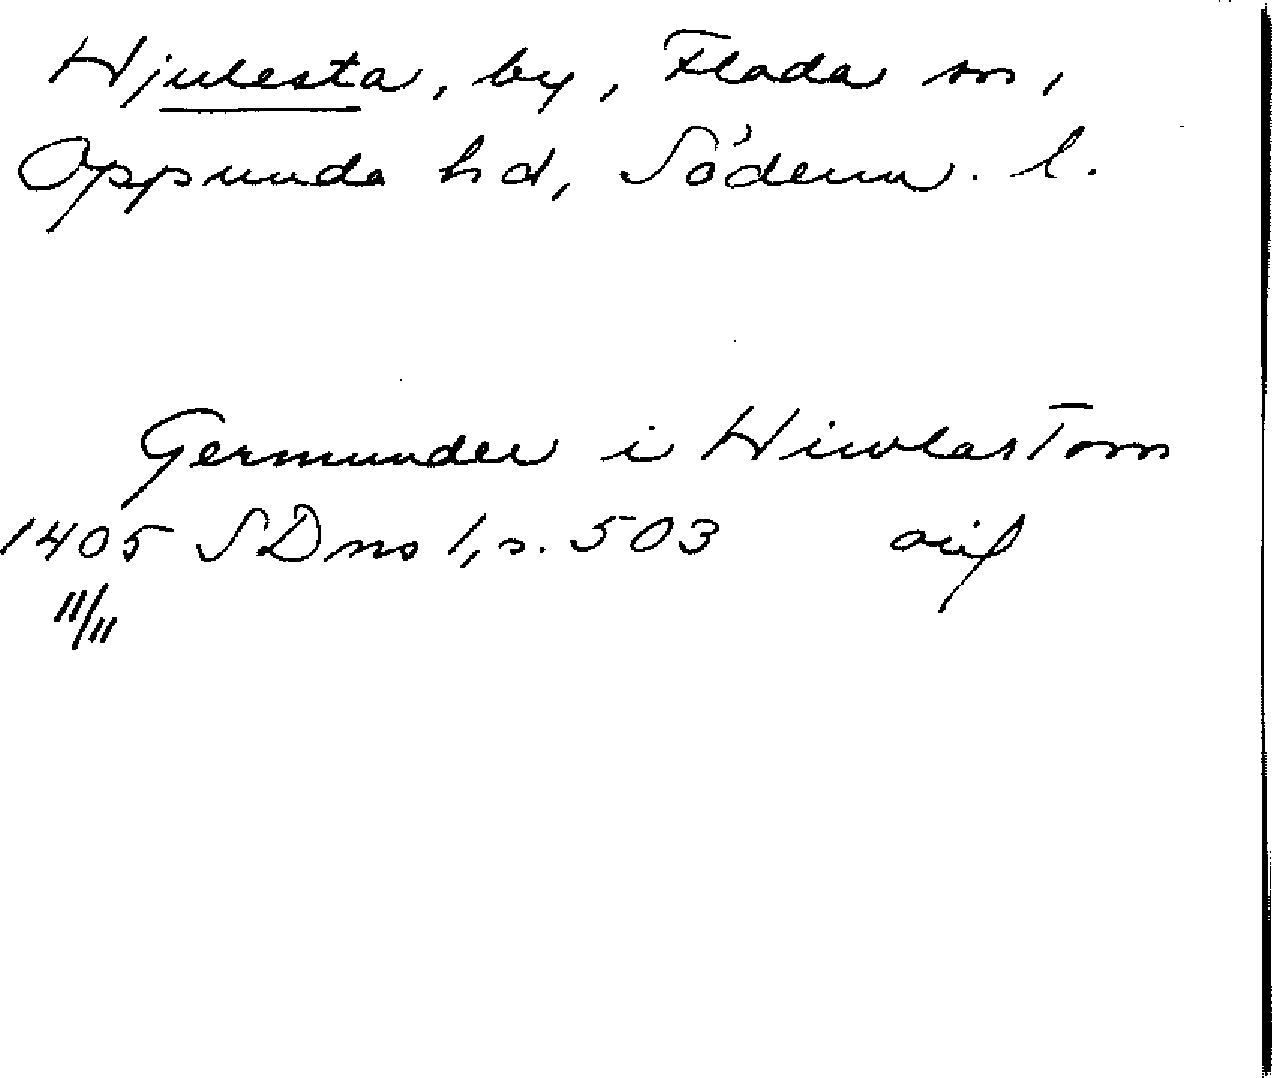 Hjulesta, by, Floda sn,
Oppunda hd, Söderm. l.
Germunder i Hiwlastom
1405 SDns 1, s. 503 avf
11/11